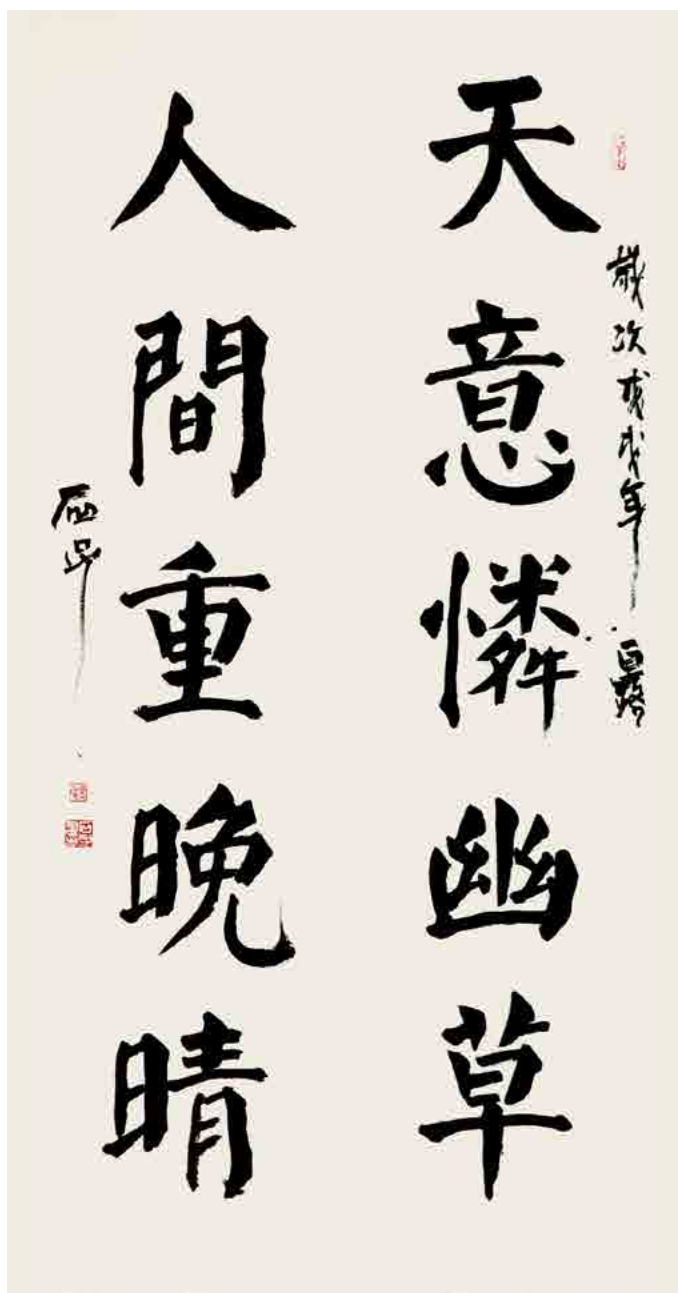 歲次戊戌年白露
天意憐幽草
人間重晚晴